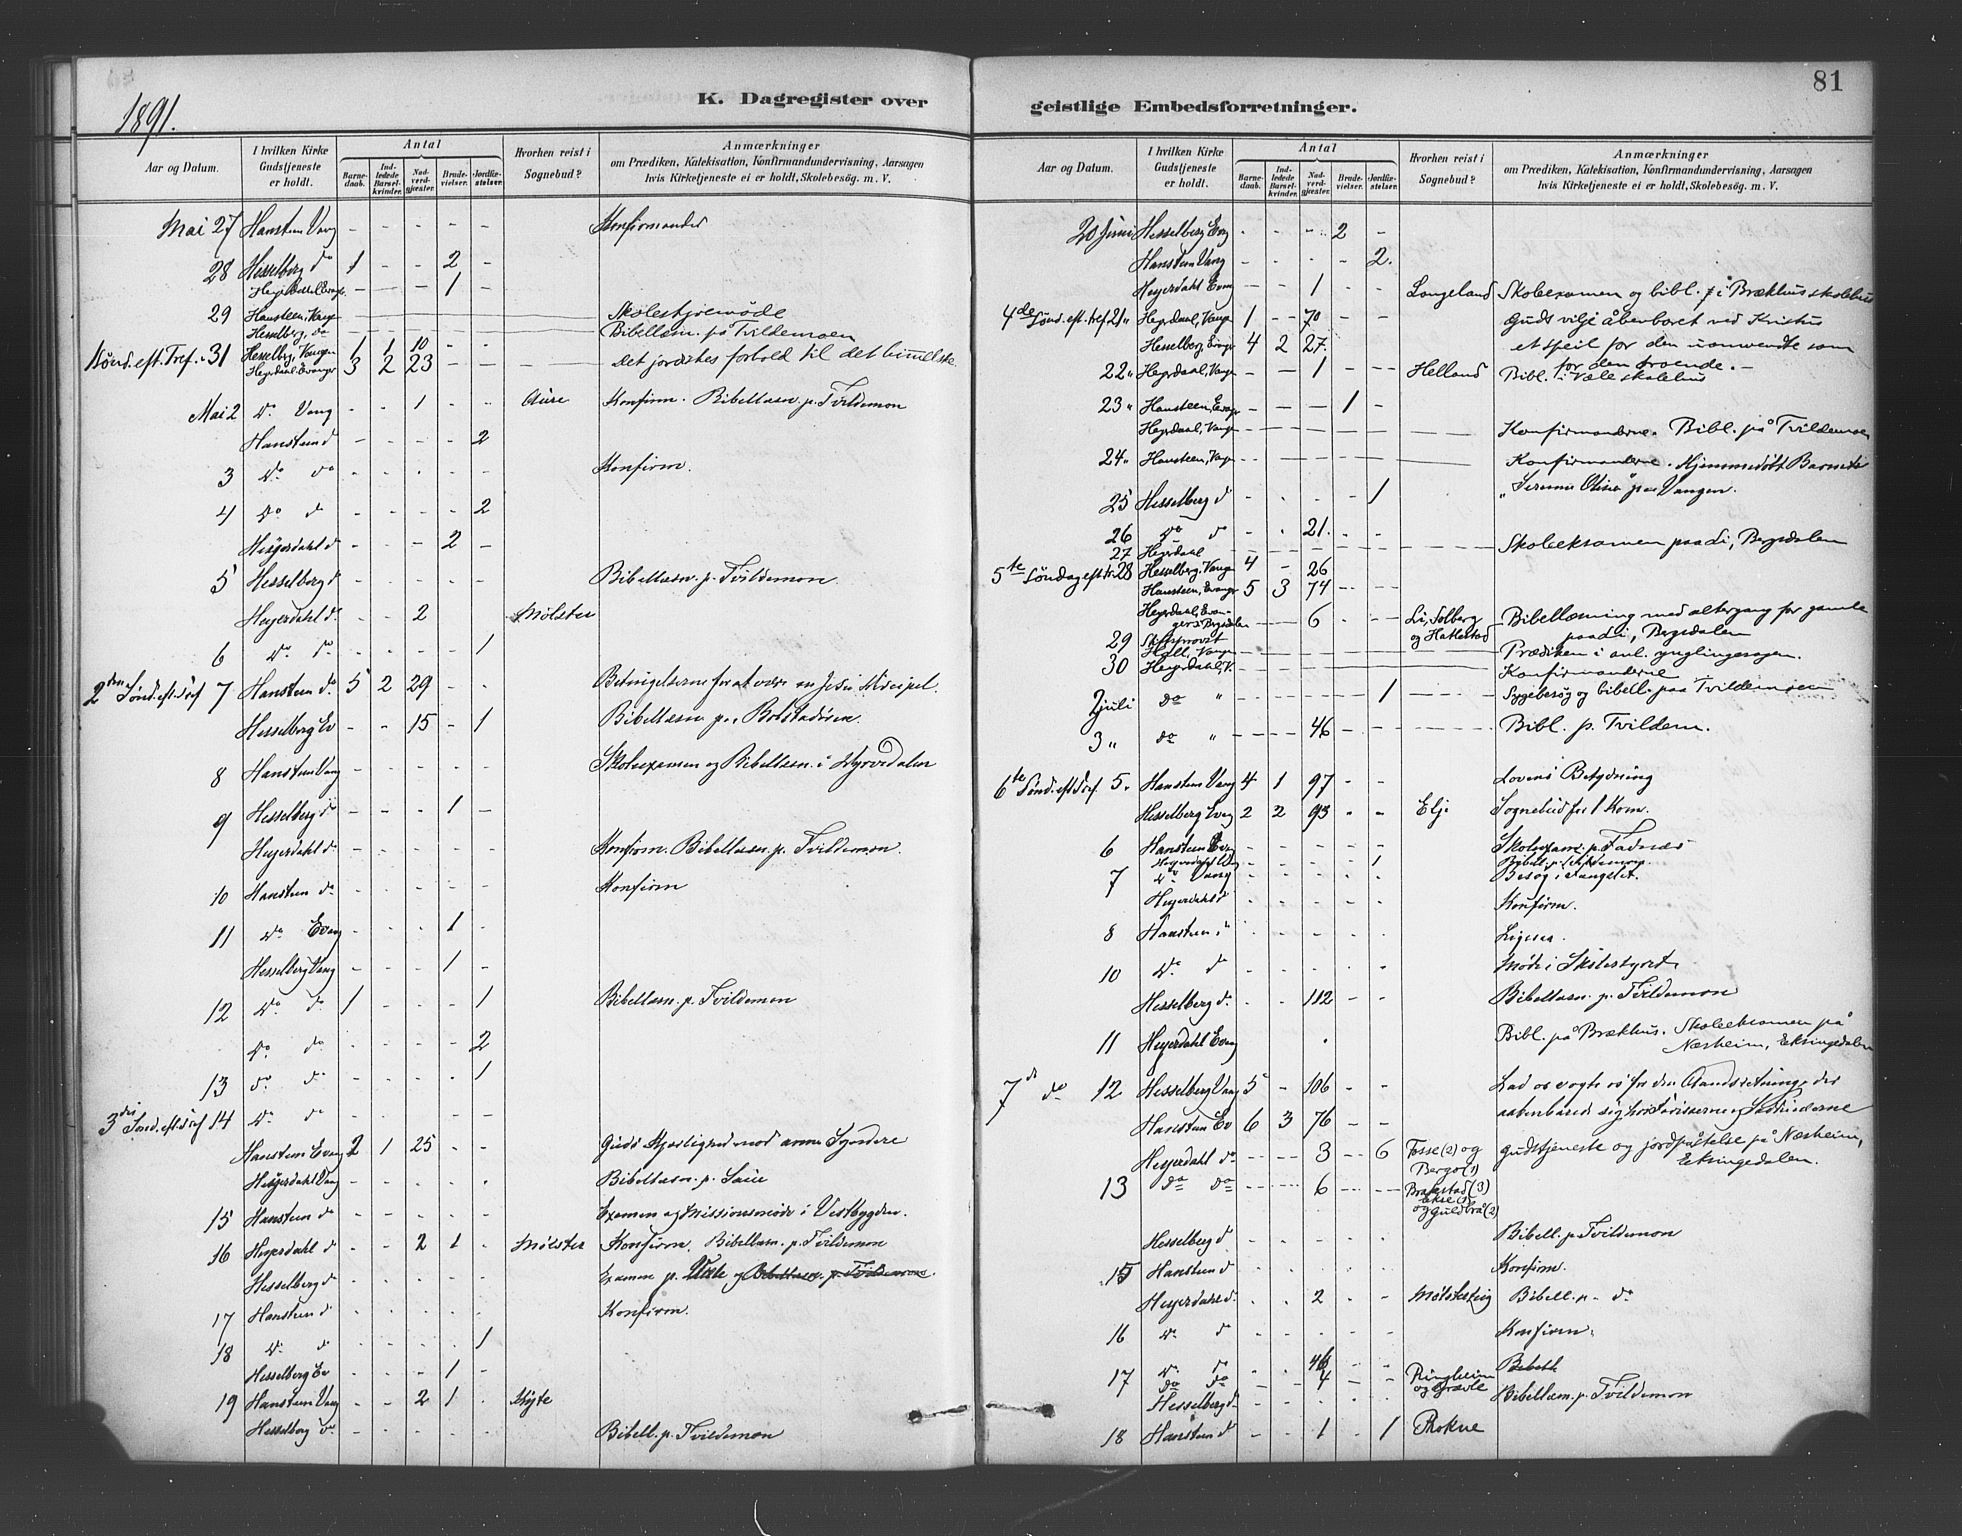 81
K. Dagregister over geistlige Embedsforretninger.
1891.
Aar og Datum.
I hvilken Kirke Gudstjeneste er holdt.
Antal
Barnedaab.
Indledede Barselkvinder.
Nadverdgjæster.
Brudevielser.
Jordfæstelser.
Hvorhen reist i Sognebud?
Anmærkninger
om Prædiken, Katekisation, Konfirmandundervisning, Aarsagen hvis Kirketjeneste ei er holdt, Skolebesøg. m. V.
Mai 27 Hansteen Vang - - - - - Konfirmander
28 Hesselberg do 1 - - 2 -
- - - 1 -
29 Hansteen, Vang Skolestyremøde
Hesselberg, do Bibellæsn. på Tvildemoen
Hesselberg, Vangen 1 1 10 - -
Sønd. eft. Tref. 31 Heyerdaal Evanger 3 2 23 - - Det jordiskes forhold til det himmelske.
Mai 2 do Vang - - 1 - - Aure Konfirm. Bibellæsn. p. Tvildemoen
Hansteen d - - - - 2
3 do do - - - - - Konfirm.
4 do d - - - - 2
Heyerdahl d - - - 2 -
5 Hesselberg d - - - - - Bibellæsn. p. Tvildemoen
Heyerdahl d. - - 2 - - Mølster
6 do do - - - - 1
2den Sønd. eft. Tref 7 Hansteen do 5 2 29 - - Betingelserne for at være en Jesu Discipel.
Hesselberg Ev - - 15 - 1 Bibellæsn p. Bolstadøren.
8 Hansteen Vang - - - - - Skoleexamen og Bibellæsn. i Hyrvedalen
9 Hesselberg d - - - 1 -
Heyerdahl d - - - - - Konfirm. Bibellæsn. p. Tvildemoen
10 Hansteen do - - - - - Konfirm
11 do Evang - - - 1 -
Hesselberg Vang - - - 1 -
12 do do 1 - - - 1 Bibellæsn. p. Tvildemoen
do do - - - - 2
13 do do - - - - 1
3die Sønd. eft Tref 14 do do - - - - -
Hansteen Evang 2 1 25 - - Guds Kjærlighed mod arme Syndere
Heyerdahl Vang - - - - - Bibellæsn. p.
15 Hansteen do - - - - - Examen og Missionsmøde i Vestbygden.
16 Heyerdahl d - - 2 1 - Mølster Konfirm. Bibellæsn. p. Tvildemoen
Hesselberg d - - - - - Examen p. og Bibellæsn. p. Tvildemoen.
17 Hansteen d - - - - - Konfirm.
18 do do - - - - 1
Hesselberg Ev - - - 1 -
19 Hansteen Vang - - 2 1 - Kyte
Hesselberg do - - - - - Bibell. p. Tvildemoen
Aar og Datum.
I hvilken Kirke Gudstjeneste er holdt.
Antal
Barnedaab.
Indledede Barselkvinder.
Nadverdgjæster.
Brudevielser.
Jordfæstelser.
Hvorhen reist i Sognebud?
Anmærkninger
om Prædiken, Katekisation, Konfirmandundervisning, Aarsagen hvis Kirketjeneste ei er holdt, Skolebesøg. m. V.
20 Juni Hesselberg Evg - - - 2 -
Hansteen Vang 2.
Heyerdahl Evang - - 1 - - Longeland Skoleexamen og bibl. p. i Brækhus skolehus
4de Sønd. eft. tref. 21" Heyerdaal, Vangen 1 - 70 - - Guds vilje åbenbaret ved Kristus
Hesselberg, Evanger 4 2 27. et speil for den uomvendte som
for den troende. -
22" Heyerdaal, Vangen - - 1 - - Helland Bibl. i Væle skolehus
23" Hansteen, Evanger - - - 1 -
Heyerdaal, Vangen - - - - - Konfirmanderne. Bibl. på Tvildemoen
24" Hansteen, Vangen - - - - - Konfirmanderne. Hjemmedøbt Barnets
25 Hesselberg d - - - - 1 paa Vangen.
26 do d - - 21. - -
27 Heyerdaal - - - - - Skoleeksamen paa Li, Bergsdalen
5te Søndag eft. tr. 28 Hesselberg, Vangen 4 - 26
Hansteen, Evanger 5 3 74 - -
Heyerdaal, Evangers Bergsdalen - - 6 - - Li, Solberg og Hatlestad Bibellæsning med altergang for gamle
paa Li, Bergsdalen
29 Stiftsprovst Hall, Vangen - - - - - Prædiken i anl. ynglingesagen.
30 Heyerdahl, V. - - - - - Konfirmanderne
2 juli do " - - - - 1 Sygebesøg og bibell. paa Tvildemoen
3 " do " - - 46 - - Bibl. p. Tvildem.
6te Sønd. eft Tref 5. Hansteen Vang 4 1 97 - - Lovens Betydning
Hesselberg Evang 2 2 93 - - Elje Sognebud for 1 Kom.
6 Hansteen Evang - - - - - Skoleexam. p. Fadnæs
Heyerdahl Vang - - - - 1 Bibell. p. Tvildemoen
7 do Vang - - - - - Besøg i Fængslet.
Heyerdahl d - - - - - Konfirm.
8 Hansteen " - - - - - Ligesaa.
10 do d - - - - - Møde i Skolestyret.
Hesselberg d. - - 112 - - Bibellæsn. p. Tvildemoen
11 Heyerdahl Evang Bibl. på Brækhus. Skoleeksamen på
Næsheim, Eksingedalen
7de do 12 Hesselberg Vang 5 - 106 - - Lad os vogte os for den Aandsretning der
Hansteen Ev 6 3 76 - - aabenbarede sig hos Farisæerne og Saddukæerne
Heyerdahl do - - 3 - 6 Fosse (2) og Bergo (1) Gudstjeneste og jordpåkastelse på Næsheim,
Eksingedalen.
13 do do - - 6 - - Brakestad (3) Ekse (1) og Guldbrå (2)
Hesselberg d - - - - - Bibell. p. Tvildemoen
15 Hansteen d - - - - - Konfirm.
Heyerdahl d. - - 2 - - Bibell. p. do
16 do d - - - - - Konfirm.
17 do do - - 46 - - Bibell.
do do - - 4 - - Ringheim og Græve
Hesselberg d - Bibellæsn. p. Tvildemoen
18 Hansteen d - - 1 - 1 Rokne